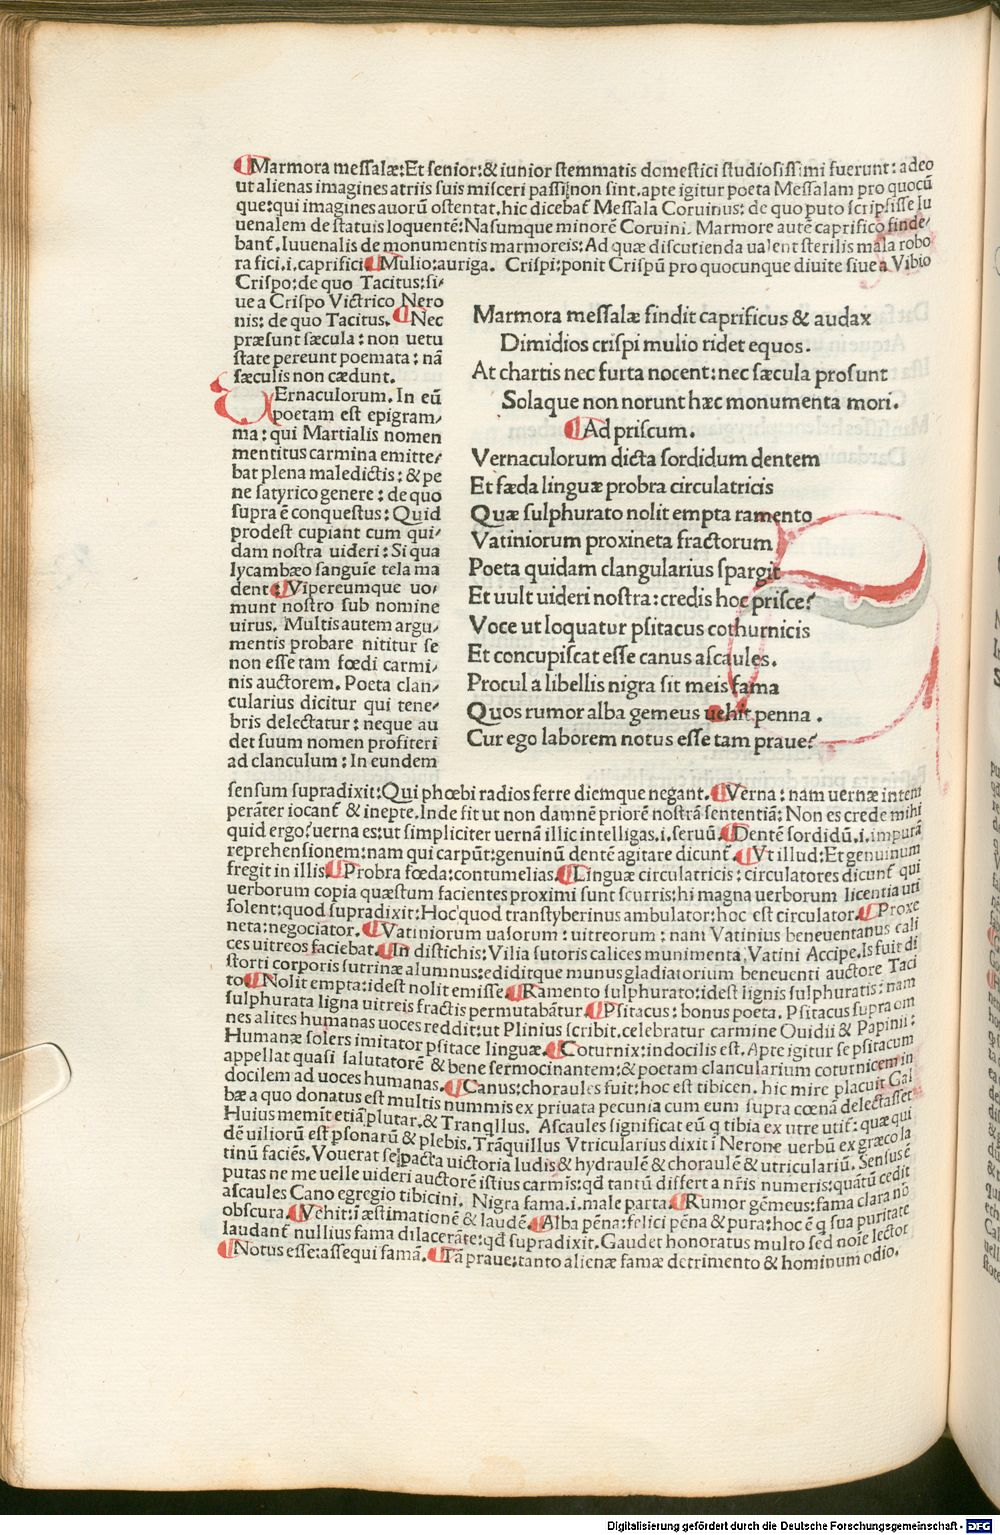 Marmora messalæ:Et senior:& iunior stemmatis domestici studiosissimi fuerunt: adeo
ut alienas imagines atriis suis misceri passi non sint. apte igitur poeta Messalam pro quocū
que:qui imagines auorū ostentat. hic dicebat̄ Messala Coruinus: de quo puto scripsisse Iu
uenalem de statuis loquentē: Nasumque minorē Coruini. Marmore autē caprifico finde/
bant̄. Iuuenalis de monumentis marmoreis: Ad quæ discutienda ualent sterilis mala robo
ra fici.i.caprifici. Mulio:auriga. Crispi:ponit Crispū pro quocunque diuite siue a Vibio
Crispo:de quo Tacitus:si/
ue a Crispo Victrico Nero
nis: de quo Tacitus. Nec
præsunt sæcula: non uetu
state pereunt poemata: nā
sæculis non cædunt.
Ernaculorum. In eū
poetam est epigram/
ma: qui Martialis nomen
mentitus carmina emitte/
bat plena maledictis: & pe
ne satyrico genere: de quo
supra ē conquestus: Quid
prodest cupiant cum qui/
dam nostra uideri: Si qua
lycambæo sanguīe tela ma
dent: Vipereumque uo/
munt nostro sub nomine
uirus. Multis autem argu/
mentis probare nititur se
non esse tam fœdi carmi/
nis auctorem. Poeta clan/
cularius dicitur qui tene/
bris delectatur: neque au
det suum nomen profiteri
ad clanculum: In eundem
Marmora messalæ findit caprificus & audax
Dimidios crispi mulio ridet equos.
At chartis nec furta nocent: nec sæcula prosunt
Solaque non norunt hæc monumenta mori.
Ad priscum.
Vernaculorum dicta sordidum dentem
Et fæda linguæ probra circulatricis
Quæ sulphurato nolit empta ramento
Vatiniorum proxineta fractorum
Poeta quidam clangularius spargit
Et uult uideri nostra: credis hoc prisce?
Voce ut loquatur psitacus cothurnicis
Et concupiscat esse canus ascaules.
Procul a libellis nigra sit meis fama
Quos rumor alba gemeus uehit penna.
Cur ego laborem notus esse tam praue?
sensum supradixit: Qui phœbi radios ferre diemque negant. Verna: nam uernæ intem
perāter iocant̄ & inepte. Inde fit ut non damnē priorē nostrā sententiā: Non es crede mihi
quid ergo? uerna es: ut simpliciter uernā illic intelligas.i.seruū. Dentē sordidū.i.impurā
reprehensionem: nam qui carpūt: genuinū dentē agitare dicunt̄. Vt illud: Et genuinum
fregit in illis. Probra fœda: contumelias. Linguæ circulatricis: circulatores dicunt̄ qui
uerborum copia quæstum facientes proximi sunt scurris: hi magna uerborum licentia uti
solent: quod supradixit: Hoc quod transtyberinus ambulator: hoc est circulator. Proxe
neta: negociator. Vatiniorum uasorum: uitreorum: nam Vatinius beneuentanus cali
ces uitreos faciebat. In distichis: Vilia sutoris calices munimenta, Vatini Accipe. Is fuit di
storti corporis sutrinæ alumnus: ediditque munus gladiatorium beneuenti auctore Taci
to. Nolit empta: idest nolit emisse. Ramento sulphurato: idest lignis sulphuratis: nam
sulphurata ligna uitreis fractis permutabātur. Psitacus: bonus poeta. Psitacus supra om
nes alites humanas uoces reddit: ut Plinius scribit. celebratur carmine Ouidii & Papinii:
Humanæ solers imitator psitace linguæ. Coturnix: indocilis est. Apte igitur se psitacum
appellat quasi salutatorē & bene sermocinantem: & poetam clancularium coturnicem in
docilem ad uoces humanas. Canus: choraules fuit: hoc est tibicen. hic mire placuit Gal
bæ a quo donatus est multis nummis ex priuata pecunia cum eum supra cœnā delectasset
Huius memit etiā plutar. & Tranqllus. Ascaules significat eū q tibia ex utre utit̄: quæ qui
dē uiliorū est psonarū & plebis. Trāquillus Vtricularius dixit i Nerone uerbū ex græco la
tinū faciēs. Vouerat se pacta uictoria ludis & hydraulē & choraulē & utriculariū. Sensus ē
putas ne me uelle uideri auctorē istius carmis: qd tantū differt a nr̄is numeris: quātū cedit
ascaules Cano egregio tibicini. Nigra fama.i.male parta. Rumor gēmeus: fama clara nō
obscura. Vehit: i æstimationē & laudē. Alba pēna: felici pēna & pura: hoc ē q sua puritate
laudant̄ nullius fama dilacerāte: qd supradixit. Gaudet honoratus multo sed noīe lector
Notus esse: assequi famā. Tā praue: tanto alienæ famæ detrimento & hominum odio.
Digitalisierung gefördert durch die Deutsche Forschungsgemeinschaft - DFG